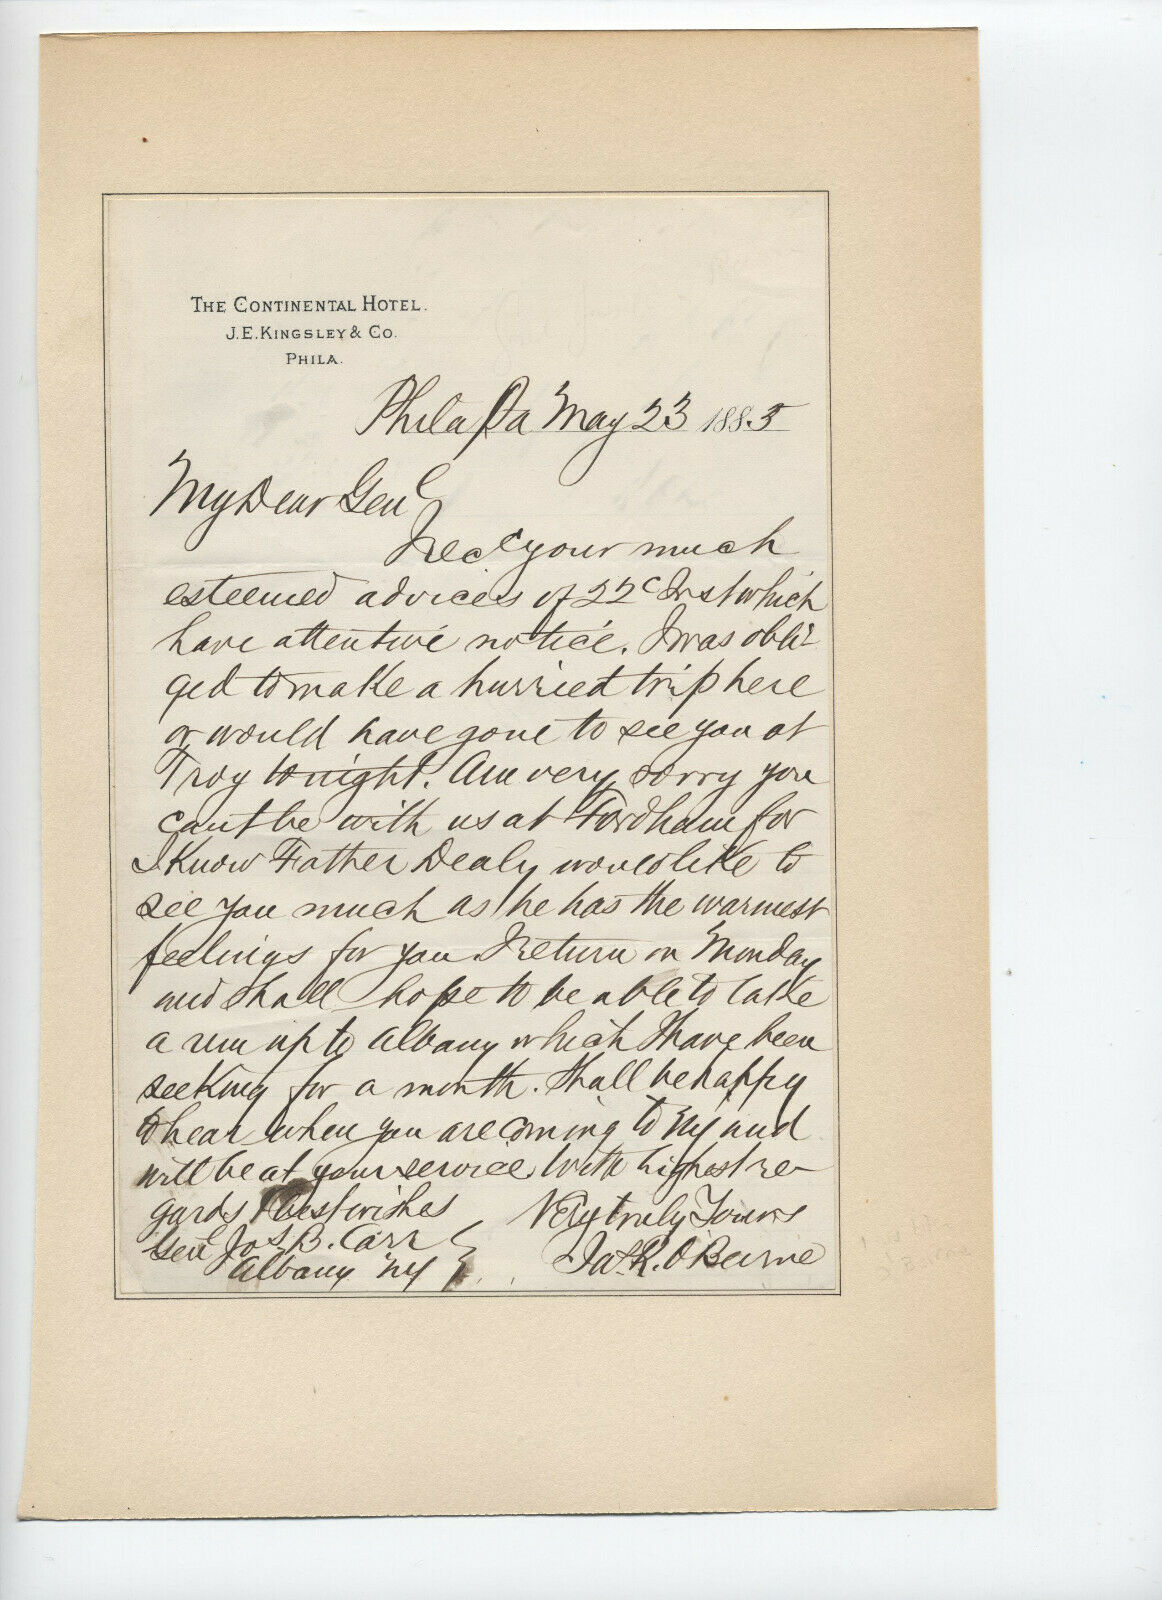 THE CONTINENTAL HOTEL.
J.E. KINGSLEY & CO.
PHILA.
Phila Pa May 23 1885
My Dear Genl
I recd your much
esteemed advices of 22d Inst which
have attentive notice. I was obli-
ged to make a hurried trip here
or would have gone to see you at
Troy tonight. Am very sorry you
cant be with us at Fordham for
I know Father Dealy would like to
see you much as he has the warmest
feelings for you. I return on Monday
and shall hope to be able to take
a run up to Albany which I have been
seeking for a month. Shall be happy
to hear when you are coming to NY and
will be at your service. With highest re-
gards & best wishes Very truly Yours
Genl Jos B. Carr Jas R. O'Beirne
Albany NY